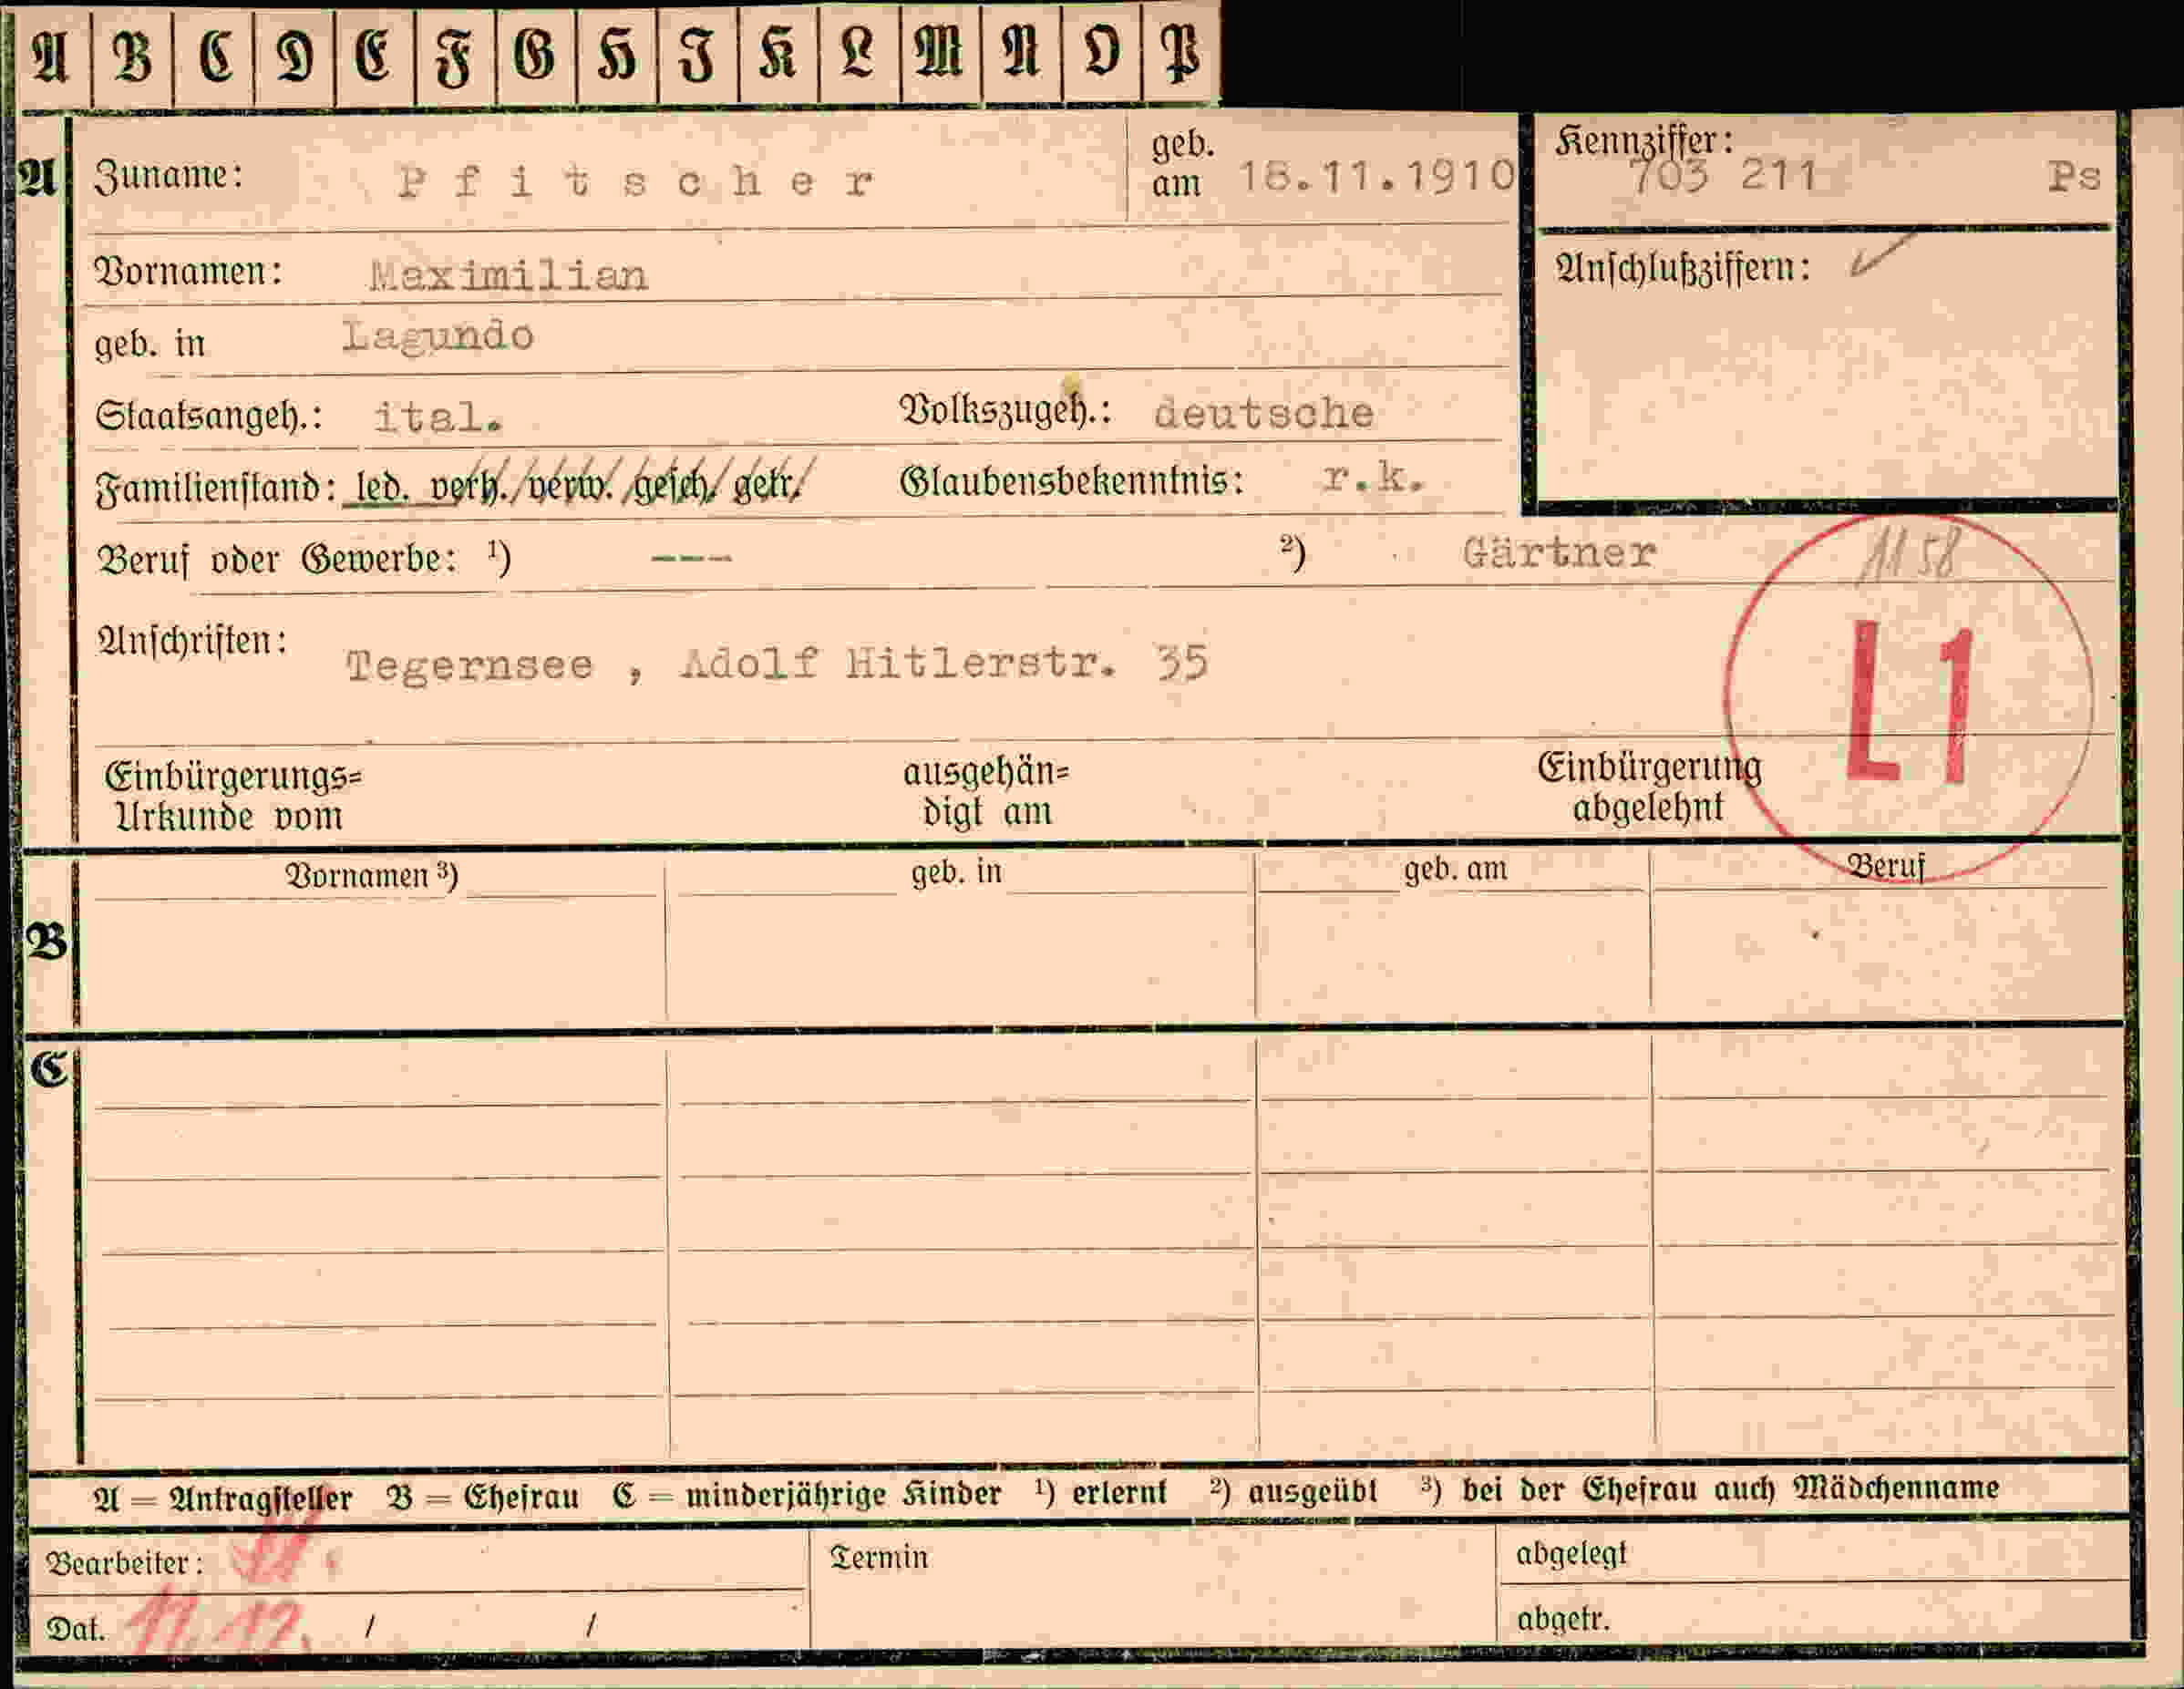 A B C D E F G H I K L M N O P
A Zuname: Pfitscher geb. am 18.11.1910 Kennziffer: 703 211 Ps
Vornamen: Maximilian Anschlußziffern:
geb. in Lagundo
Staatsangeh.: ital. Volkszugeh.: deutsche
Familienstand: led. verh. verw. gesch. getr. Glaubensbekenntnis: r.k.
Beruf oder Gewerbe: ¹) --- ²) Gärtner 1158
Anschriften: Tegernsee , Adolf Hitlerstr. 35
L1
Einbürgerungs= ausgehän= Einbürgerung
Urkunde vom digt am abgelehnt
Vornamen ³) geb. in geb. am Beruf
B
C
A = Antragsteller B = Ehefrau C = minderjährige Kinder ¹) erlernt ²) ausgeübt ³) bei der Ehefrau auch Mädchenname
Bearbeiter: Termin abgelegt
Dat. / / abgetr.